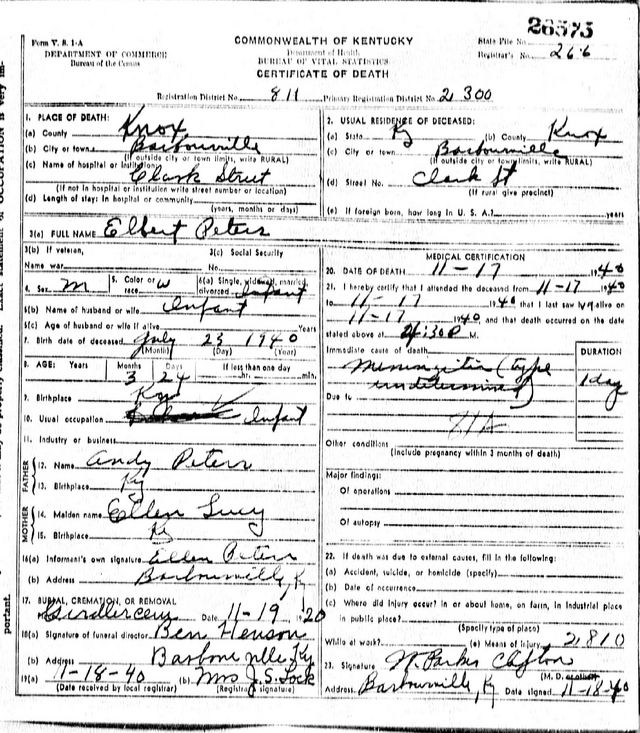 26575
Form V. S. 1-A
DEPARTMENT OF COMMERCE
Bureau of the Census
COMMONWEALTH OF KENTUCKY
Department of Health
BUREAU OF VITAL STATISTICS
CERTIFICATE OF DEATH
State File No.
Registrar's No. 266
Registration District No. 811 Primary Registration District No. 2300
1. PLACE OF DEATH:
(a) County Knox
(b) City or town Barbourville
(If outside city or town limits, write RURAL)
(c) Name of hospital or institution:
Clark Street
(If not in hospital or institution write street number or location)
(d) Length of stay: In hospital or community
(years, months or days)
2. USUAL RESIDENCE OF DECEASED:
(a) State Ky (b) County Knox
(c) City or town Barbourville
(If outside city or town limits, write RURAL)
(d) Street No. Clark St
(If rural give precinct)
(e) If foreign born, how long in U. S. A.? years
3(a) FULL NAME Elbert Peters
3(b) If veteran,
Name war
3(c) Social Security
No.
4. Sex M 5. Color or race W 6(a) Single, widowed, married, divorced Infant
6(b) Name of husband or wife Infant
6(c) Age of husband or wife if alive Years
7. Birth date of deceased July 23 1940
(Month) (Day) (Year)
8. AGE: Years Months Days If less than one day
3 24 hr. min.
9. Birthplace Ky
10. Usual occupation Infant
11. Industry or business
FATHER
12. Name Andy Peters
13. Birthplace Ky
MOTHER
14. Maiden name Ellen Lucy
15. Birthplace Ky
16(a) Informant's own signature Ellen Peters
(b) Address Barbourville, Ky
17. BURIAL, CREMATION, OR REMOVAL
Date 11-19 1920
18(a) Signature of funeral director Ben Henson
(b) Address Barbourville Ky
19(a) 11-18-40 (b) Mrs J. S. Lock
(Date received by local registrar) (Registrar's signature)
MEDICAL CERTIFICATION
20. DATE OF DEATH 11-17 1940
21. I hereby certify that I attended the deceased from 11-17 1940
to 11-17 1940 that I last saw him alive on
11-17 1940 and that death occurred on the date
stated above at :30 P M.
Immediate cause of death
DURATION
Meningitis (type
undetermined)
1 day
Due to
Other conditions
(Include pregnancy within 3 months of death)
Major findings:
Of operations
Of autopsy
22. If death was due to external causes, fill in the following:
(a) Accident, suicide, or homicide (specify)
(b) Date of occurrence
(c) Where did injury occur? in or about home, on farm, in industrial place
in public place?
(Specify type of place)
While at work? (e) Means of injury 2810
23. Signature N. Parker Clifton
(M. D. or other)
Address Barbourville, Ky Date signed 11-18-40
portant.